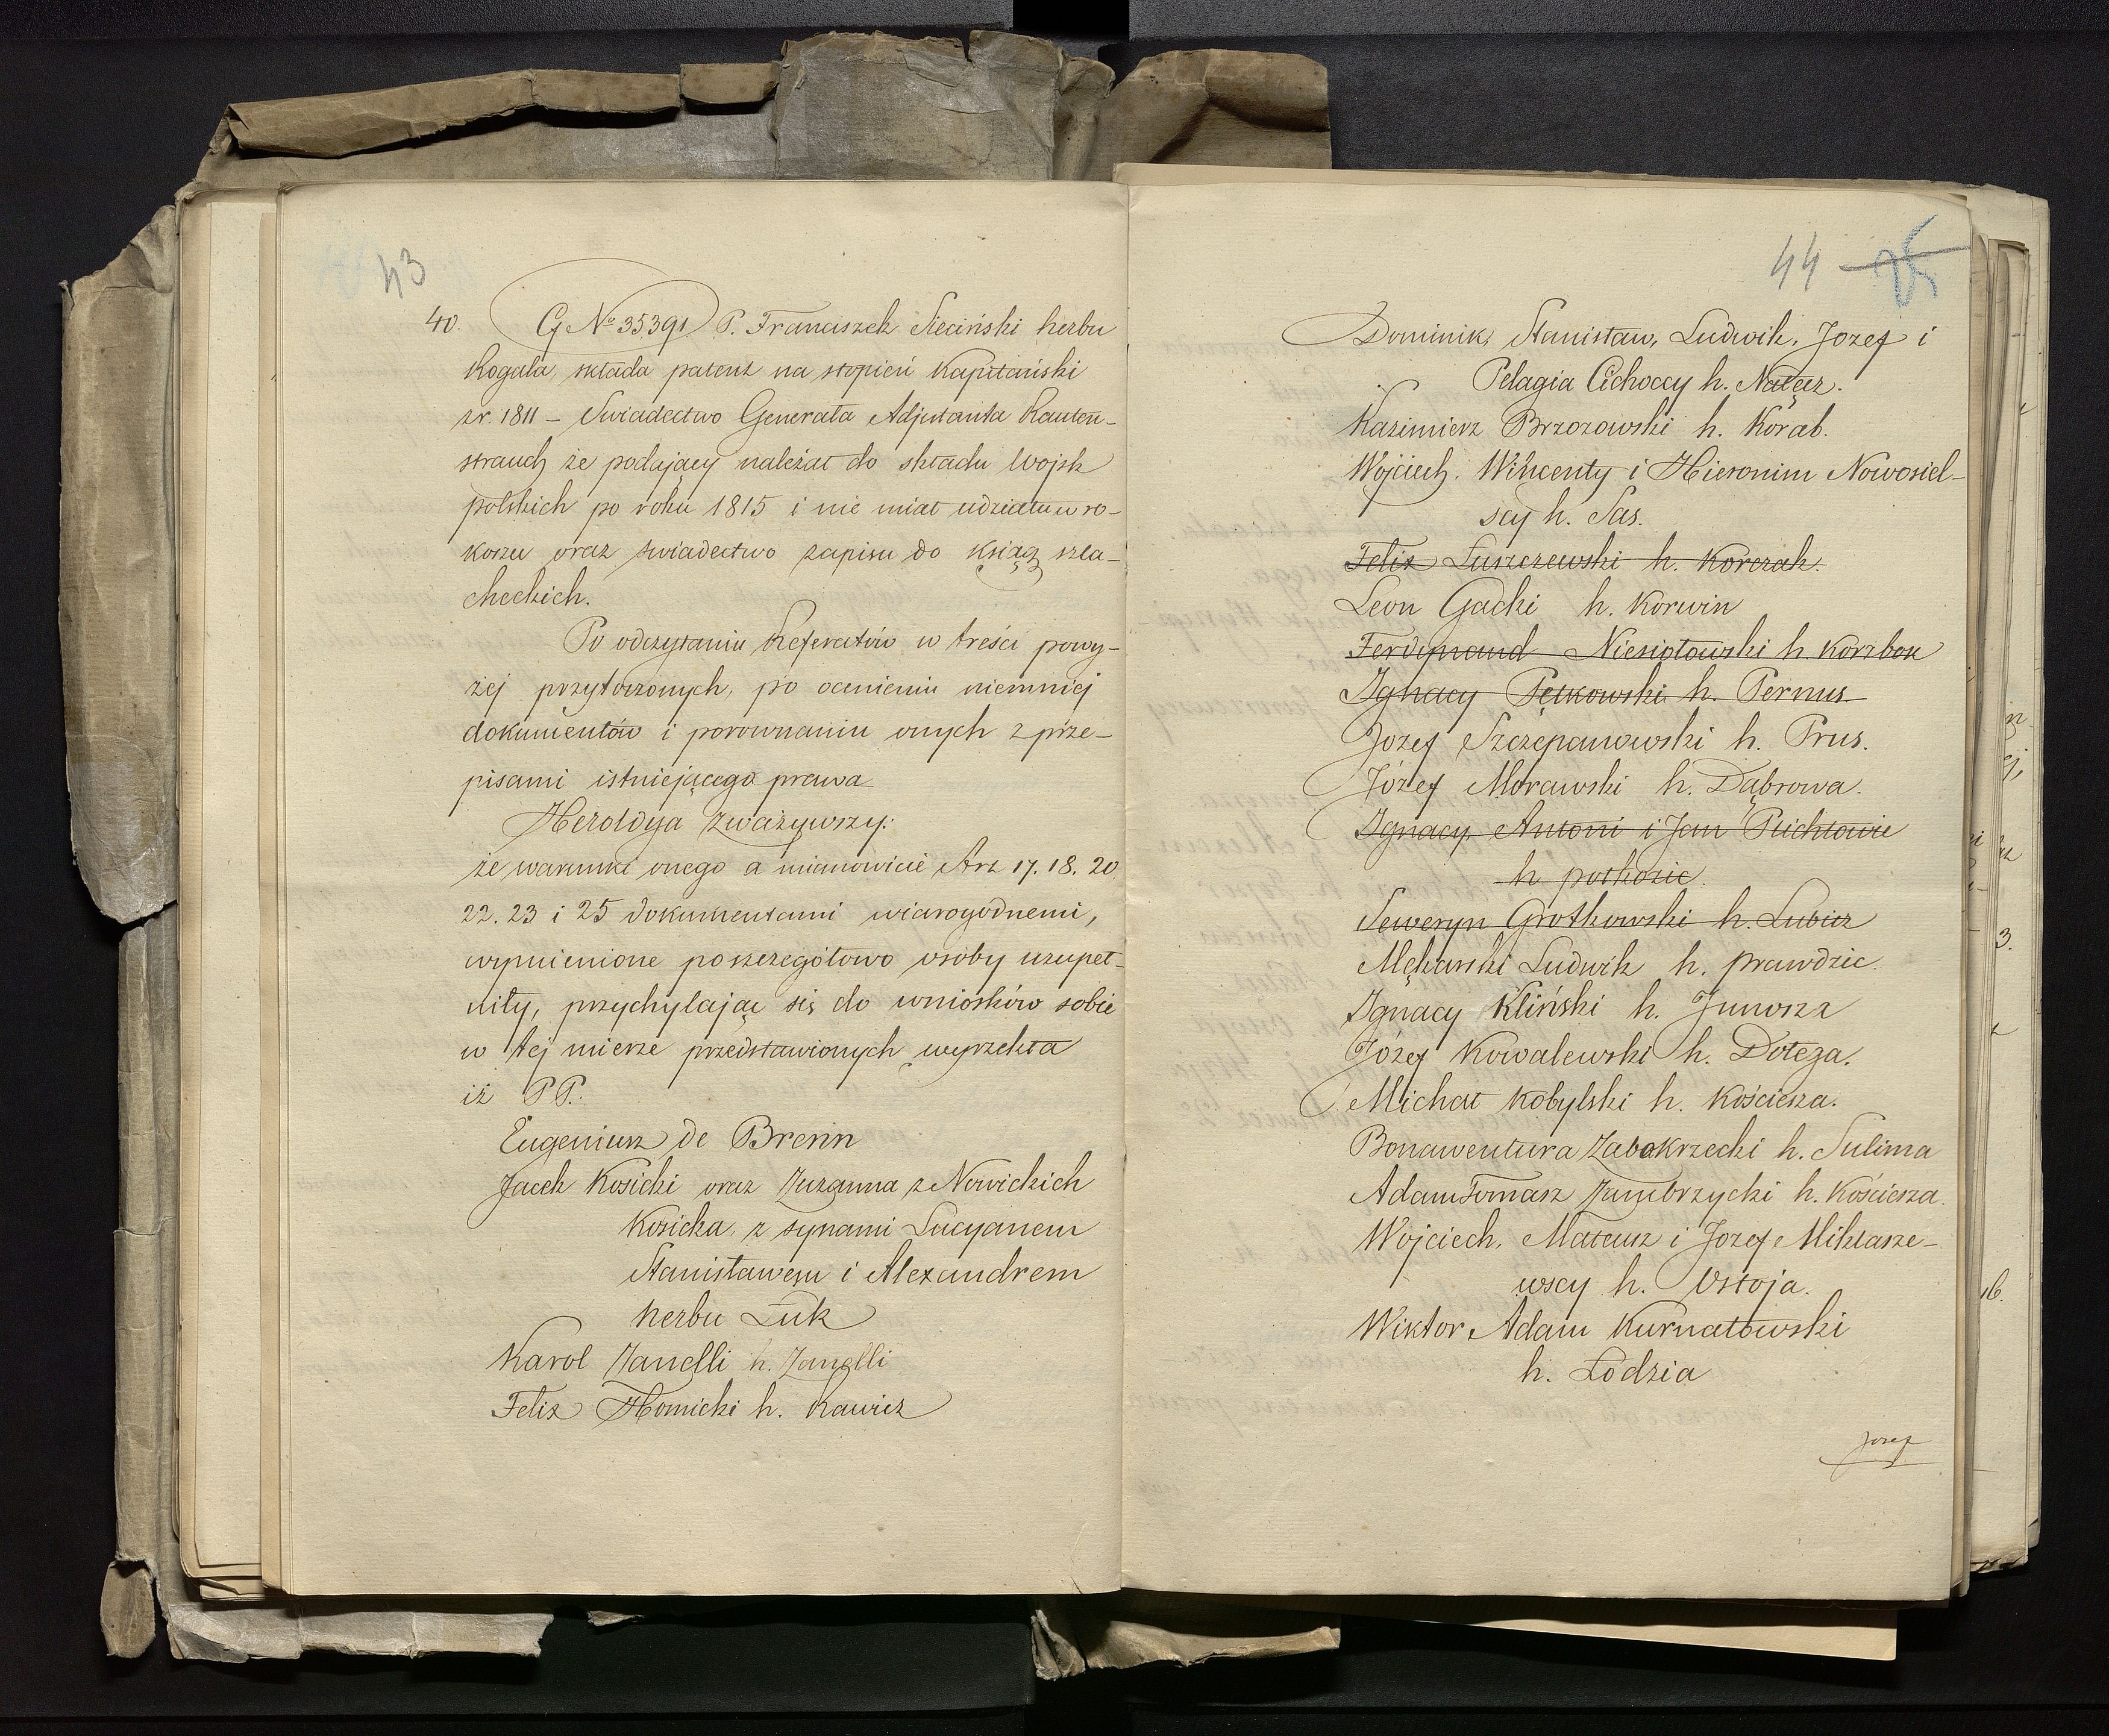 43
40. G N<sup>o</sup> 35391 P. Franciszek Sieciński herbu
Rogala, składa patent na stopień Kapitański
z r. 1811 – Swiadectwo Generała Adjutanta Rauten-
strauch że podający należał do składu Wojsk
polskich po roku 1815 i nie miał udziału w ro-
koszu oraz swiadectwo zapisu do ksiąg szla-
checkich.
Po odczytaniu Referatów w treści powy-
żej przytoczonych, po ocenieniu niemniej
dokumentów i porownaniu onych z prze-
pisami istniejącego prawa
Heroldya zważywszy:
że warunki onego a mianowicie Art 17. 18. 20.
22. 23 i 25 dokumentami wiarogodnemi,
wymienione poszczegółowo osoby uzupeł-
niły, przychylając się do wniosków sobie
w tej mierze przedstawionych wyrzekła
iż PP.
Eugeniusz de Brenn
Jacek Kosicki oraz Zuzanna z Nowickich
Kosicka, z synami Lucyanem
Stanisławem i Alexandrem
herbu Łuk
Karol Zanelli h. Zanelli
Felix Homicki h. Rawicz
44 25
Dominik, Stanisław, Ludwik, Jozef i
Pelagia Cichoccy h. Nałęcz.
Kazimierz Brzozowski h. Korab.
Wojciech, Wincenty i Hieronim Nowosiel-
scy h. Sas.
Felix Łuszczewski h. Korczak.
Leon Gacki h. Korwin
Ferdynand Niesiołowski h. Korzbok
Ignacy Pętkowski h. Pernus
Jozef Szczepanowski h. Prus.
Józef Morawski h. Dąbrowa.
Ignacy Antoni i Jan Puchłowie
h połkozic.
Seweryn Grotkowski h. Lubicz
Mękarski Ludwik h. prawdzic.
Ignacy Kliński h. Junosza
Józef Kowalewski h. Dołęga.
Michał Kobylski h. Kościesza.
Bonawentura Zabokrzecki h. Sulima
Adam Tomasz Zambrzycki h. Kościesza
Wojciech, Mateusz i Jozef Mikłasze-
wscy h. Ostoja.
Wiktor Adam Kurnatowski
h. Łodzia
Jozef